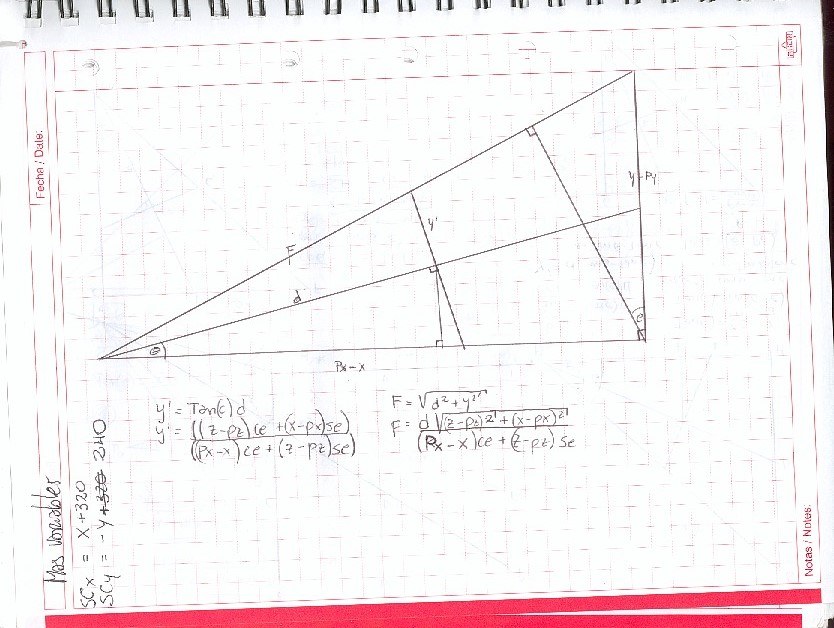 Fecha / Date:
y - Py
F
y'
d
θ
Px - x
y' = Tan( ) d
y' = ((z-pz)ce + (x-px)se)
((px-x)ce + (z-pz)se)
F = √d² + y²'
F = d√(z-pz)2' + (x-px)2'
(Px - x)ce + (z-pz)se
Mas variables
SCx = x+320
SCy = -y+320 240
Notas / Notes: